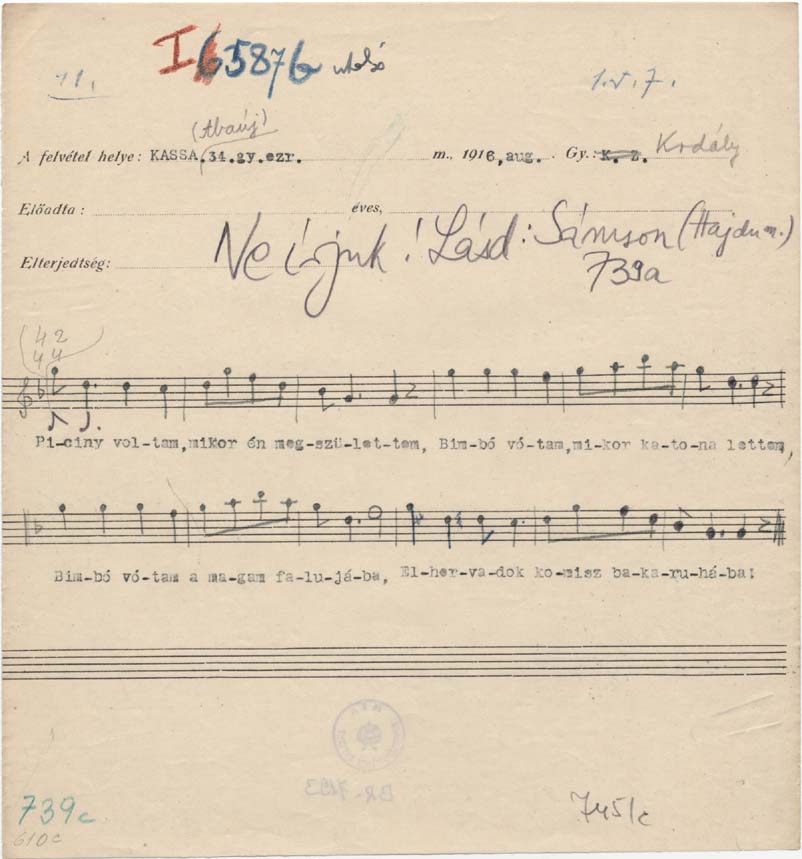 11. I 65876 utolsó 1.v.7.
(Abaúj)
A felvétel helye: KASSA.34.gy.ezr. m., 1916,aug. Gy.: K. Z. Kodály
Előadta: éves,
Elterjedtség: Ne írjuk! Lásd: Sámson (Hajdu m.)
739a
42
44
Pi-ciny vol-tam,mikor én meg-szü-let-tem, Bim-bó vó-tam,mi-kor ka-to-na lettem,
Bim-bó vó-tam a ma-gam fa-lu-já-ba, El-her-va-dok ko-misz ba-ka-ru-há-ba!
739c 745/c
610c